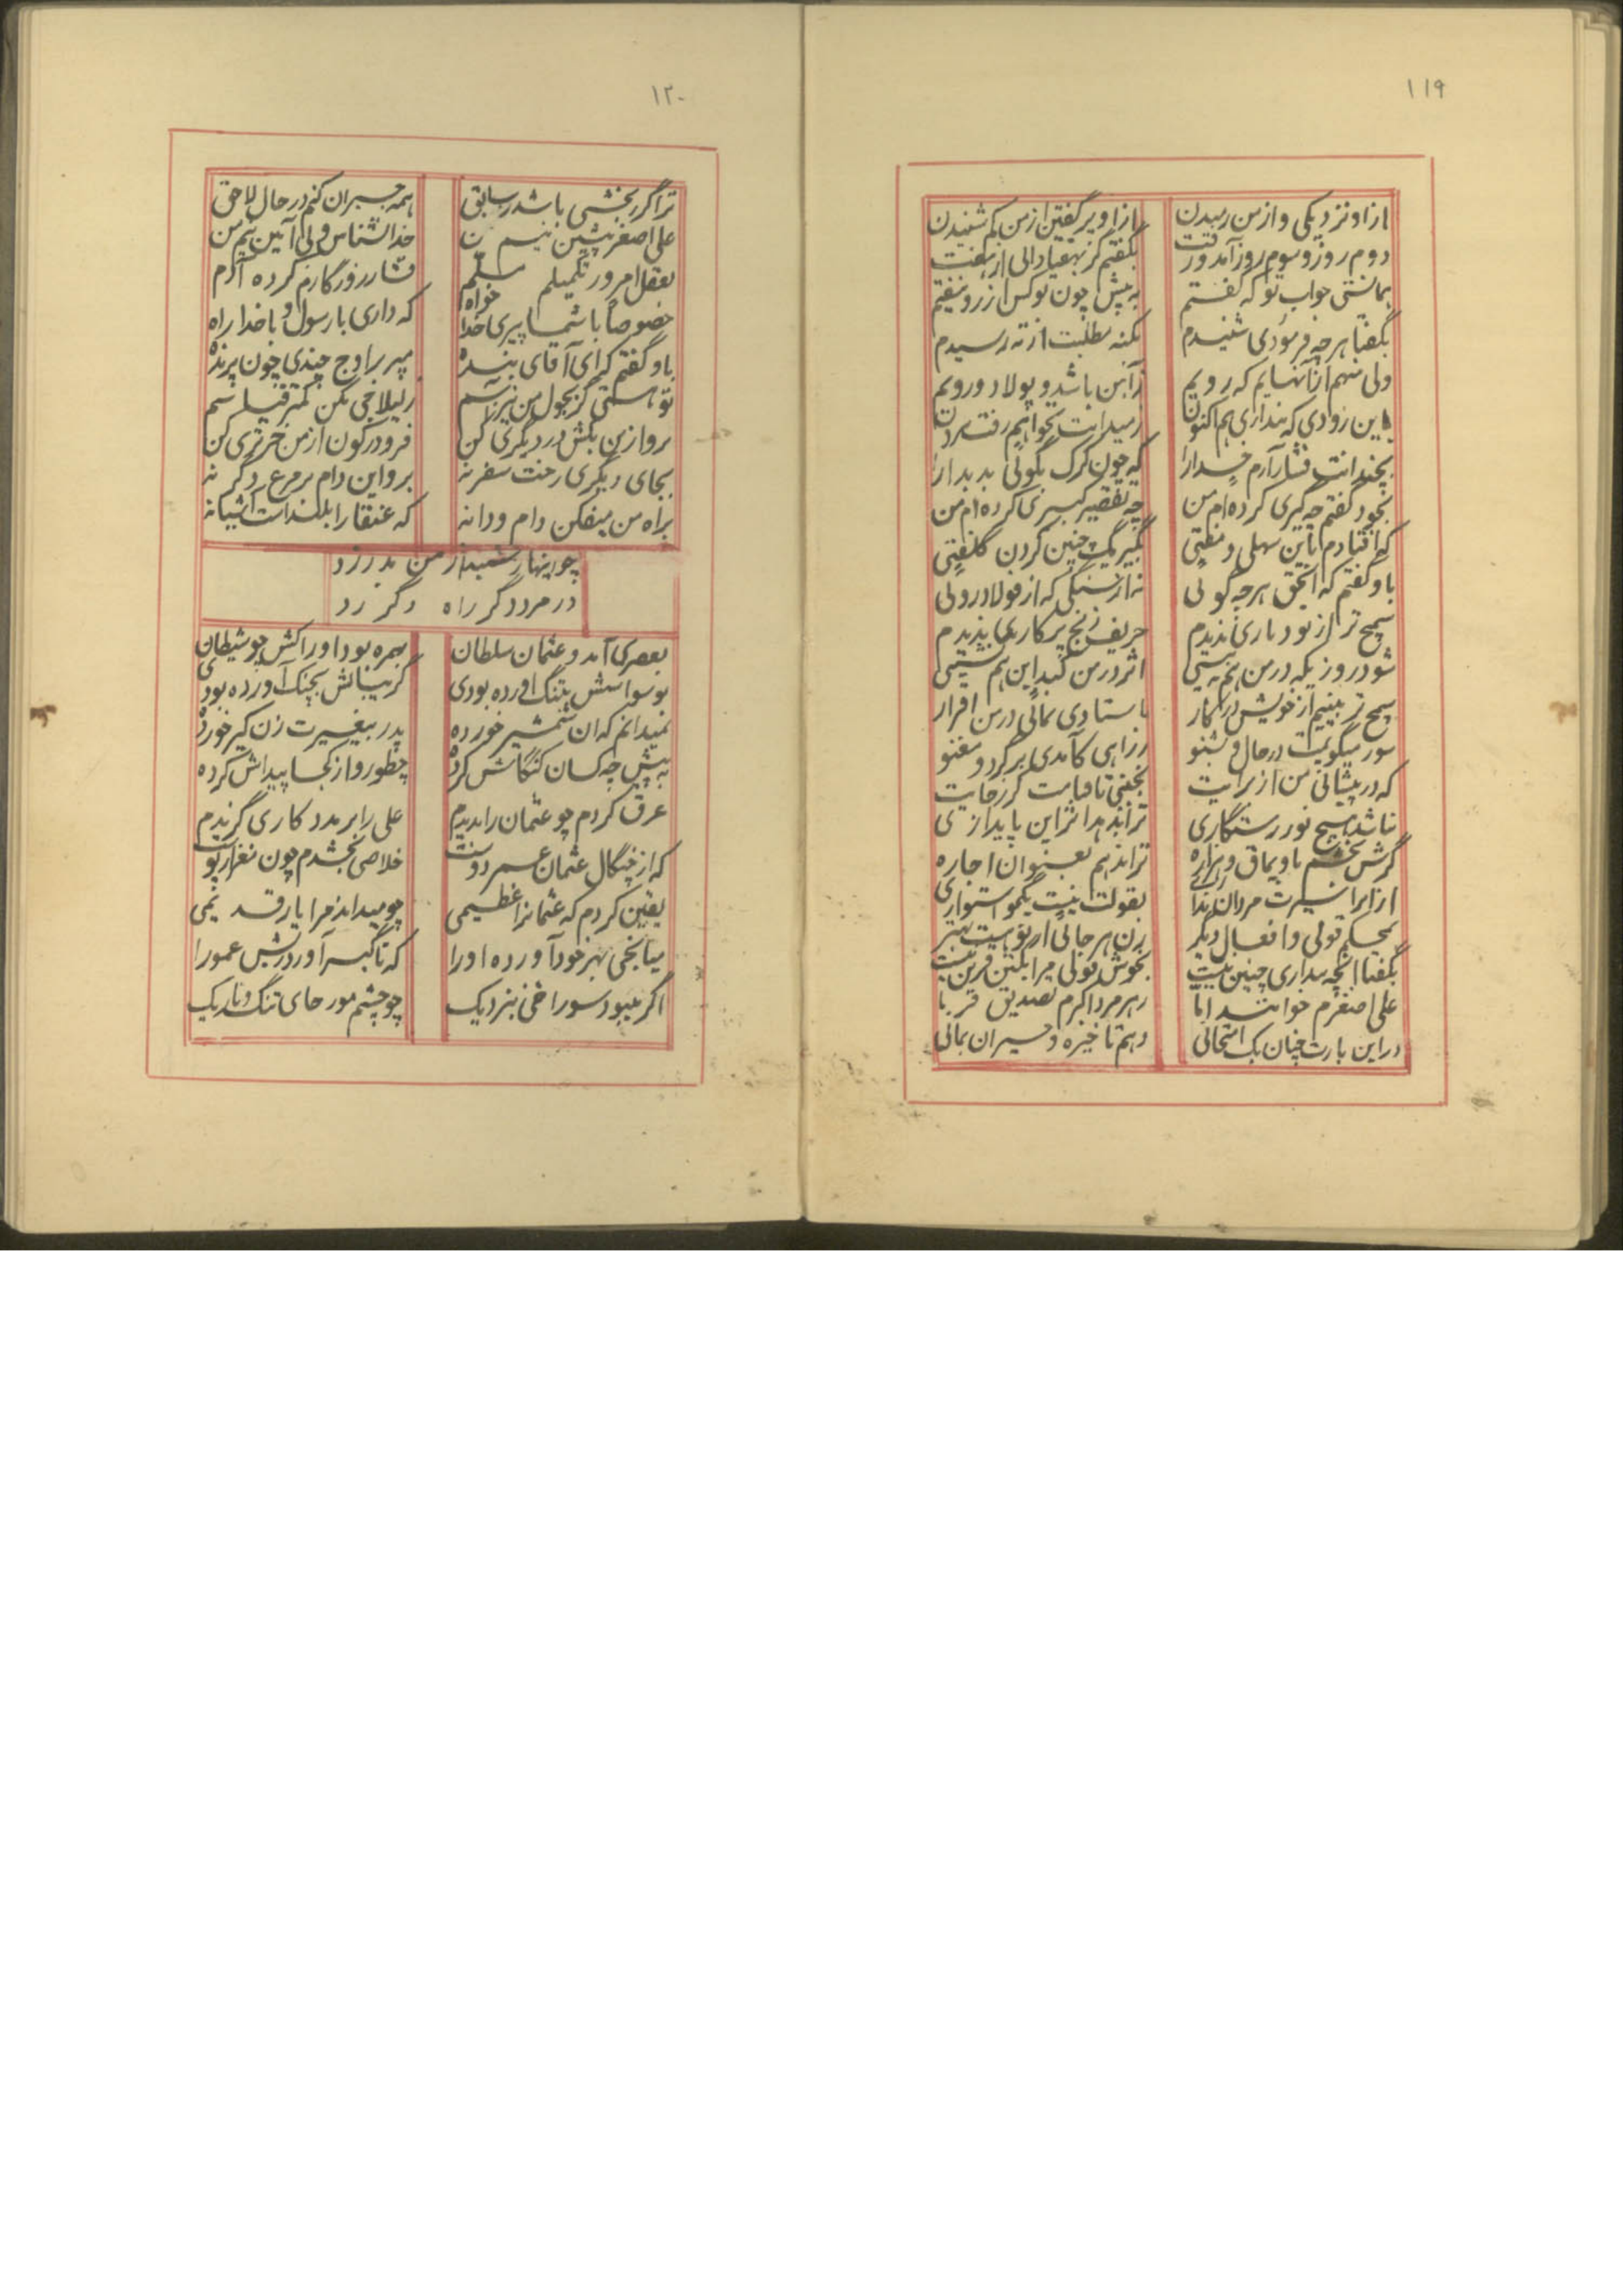 ۱۱۹
از او نزدیکی و از من رمیدن
از او پر گفتن از من کم شنیدن
دوم روز و سوم روز آمد و رفت
بگفتم گر نهفتاد الی از هفت
بمانستی جواب تو که گفتم
به پیش چون تو کس از رو نیفتم
بگفتا هر چه فرمودی شنیدم
بکنه مطلبت از ته رسیدم
ولی منهم از آنهایم که رویم
ز آهن باشد و پولاد و رویم
باین زودی که پنداری هم اکنون
ز میدانت نخواهم رفت بیرون
بخندانت فشار آرم خدا را
که چون کرک بگوئی بد بد ارا
بخود گفتم چه گیری کرده‌ام من
چه تقصیر کبیری کرده‌ام من
که افتادم باین سهلی و مفتی
بگیر یک چنین گردن کلفتی
باو گفتم که احمق هر چه گوئی
نه از سنگی که از فولاد و روئی
سمج تر از تو دیاری ندیدم
حریف زنج پر کاری ندیدم
شود روزیکه در من هم به بینی
اثر در من کند این هم نشینی
سمج تر بینیم از خویش در کار
باستادی نمائی در من اقرار
سور میگویمت در حال و بشنو
ز راهی کآمدی برگرد و مغنو
که در پیشانی من از برایت
نخفتی تا قیامت گر رجایت
نباشد هیچ نور رستگاری
ترا ندهد اثر این پایداری
گرش بخشم باویماق و هزاره
ترا ندهم بعنوان اجاره
از ایرا سیرت مردان نداری
بقولت نیست یکمو استواری
بمحکم قولی و افعال دیگر
زن هر جائی از تو هست بهتر
بگفتا آنچه پنداری چنین نیست
بخوش قولی مرا یکتن قرین نیست
علی اصغرم خوانند ابا
ز هر مرد اکرم تصدیق قربا
در این بارت چنان یک امتحانی
دهم تا خیره و حیران بمانی
۱۲۰
ترا گر رنجشی باشد ز سابق
همه جبران کنم در حال لاحق
علی اصغر پیشین نیم من
خدا نشناس و لی آئین نیم من
بعقل امروز تکمیلم مسلم
فشار روزگارم کرده آدم
خصوصا با شما پیری خدا خواه
که داری با رسول و با خدا راه
باو گفتم که ای آقای بنده
مپر بر اوج چندی چون پرنده
تو هستی گر بچول من نیز نا سم
ز لیلاجی بکن کمتر قیاسم
برو از من بکش در دیگری کن
فرو در کون از من خر تری کن
بجای دیگری رخت سفر نه
برو این دام بر مرغ دگر نه
براه من میفکن دام و دانه
که عنقا را بلند است آشیانه
چو اینها رشنید از من بدر زد
در مرد دگر راه دگر زد
بعصری آمد و عثمان سلطان
بهمره بود او را کش چو شیطان
بوسواسش بتنگ آورده بودی
گریبانش بچنگ آورده بودی
نمیدانم که آن شمشیر خورده
پدر بیغیرت زن کیر خورده
به پیش چه کسان کنکاش کرده
چطور و از کجا پیداش کرده
عرق کردم چو عثمان را بدیدم
علی را بر مدد کاری گزیدم
که از چنگال عثمان عمر دوست
خلاصی بخشدم چون نغز از پوست
یقین کردم که عثمانرا عظیمی
چو میداند مرا یار قدیمی
میانجی بهر خود آورده او را
که تا گیر آورد ریش عمو را
اگر میبود سوراخی بنزدیک
چو چشم مور جای تنگ و تاریک